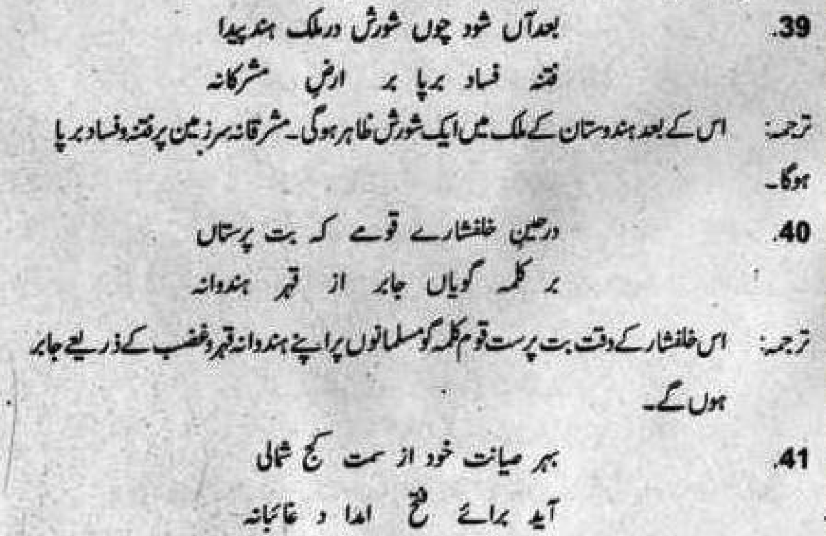 39. بعد آں شود چوں شورش در ملک ہند پیدا
فتنہ فساد برپا بر ارضِ مشرکانہ
ترجمہ: اس کے بعد ہندوستان کے ملک میں ایک شورش ظاہر ہوگی۔ مشرقانہ سرزمین پر فتنہ و فساد برپا
ہوگا۔
40. در حینِ خلفشارے قومے کہ بت پرستاں
بر کلمہ گویاں جابر از قہر ہندوانہ
ترجمہ: اس خلفشار کے وقت بت پرست قوم کلمہ گو مسلمانوں پر اپنے ہندوانہ قہر و غضب کے ذریعے جابر
ہوں گے۔
41. بہر صیانت خود از سمت کج شمالی
آید برائے فتح امدا د غائبانہ